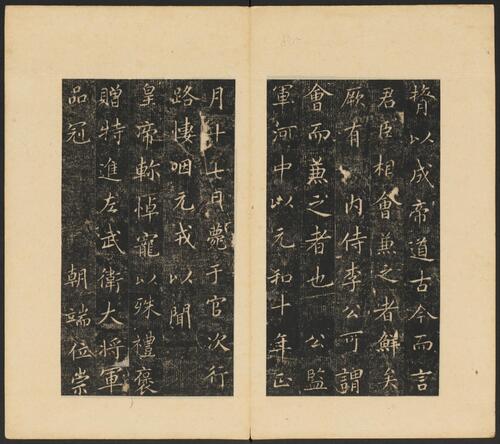 膂以成帝道古今而言
君臣相會兼之者鮮矣
厥有 内侍李公可謂
會而兼之者也 公監
軍河中以元和十年正
月廿七日薨于官次行
路悽咽元戎以聞
皇帝軫悼寵以殊禮褒
贈特進左武衛大將軍
品冠 朝端位崇